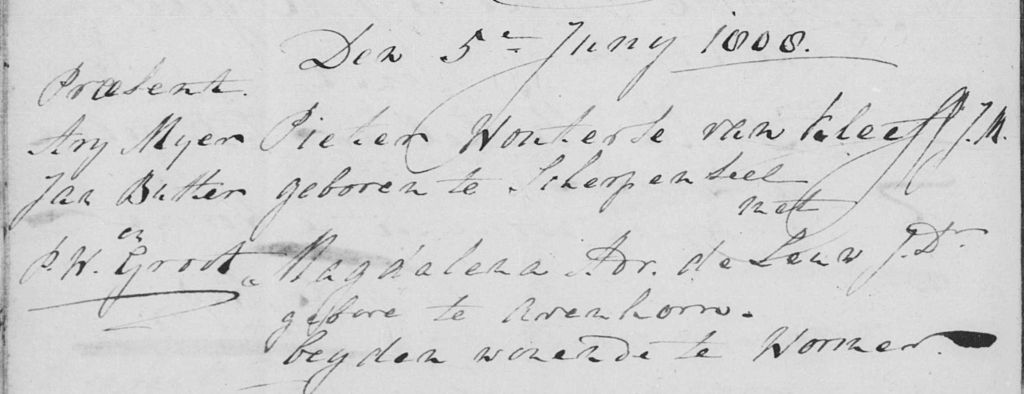 Den 5e Juny 1808.
Præsent.
Ary Myer Pieter Wouterse van Kleeff J.M.
Jan Butter geboren te Scherpenseel
met
en
P. W. Groot Magdalena Adr. de Leuw J.Dr
gebore te Avenhorn.
beyden wonende te Wormer.